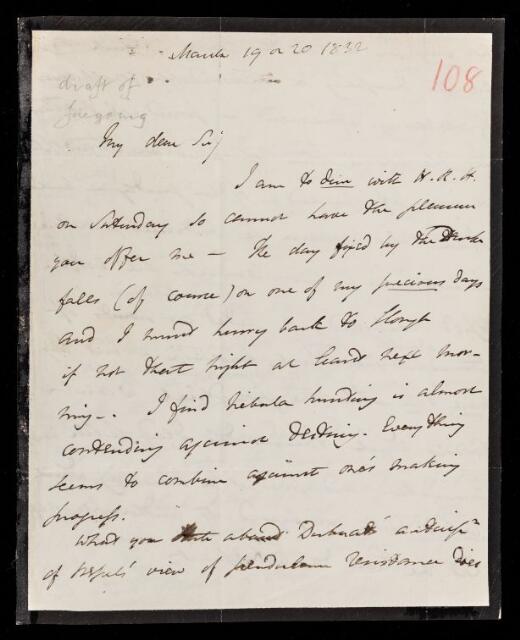 March 19 or 20 1832
108
draft of
foregoing
My dear Sir
I am to dine with H.R.H.
on Saturday so cannot have the pleasure
you offer me — The day fixed by the Duke
falls (of course) on one of my precious days
and I must hurry back to Slough
if not that night at least next mor-
ning—. I find nebula hunting is almost
contending against destiny. Everything
seems to combine against one's making
progress.
What you state about Dubuat's anticipn
of Bessel's view of pendulum resistance does